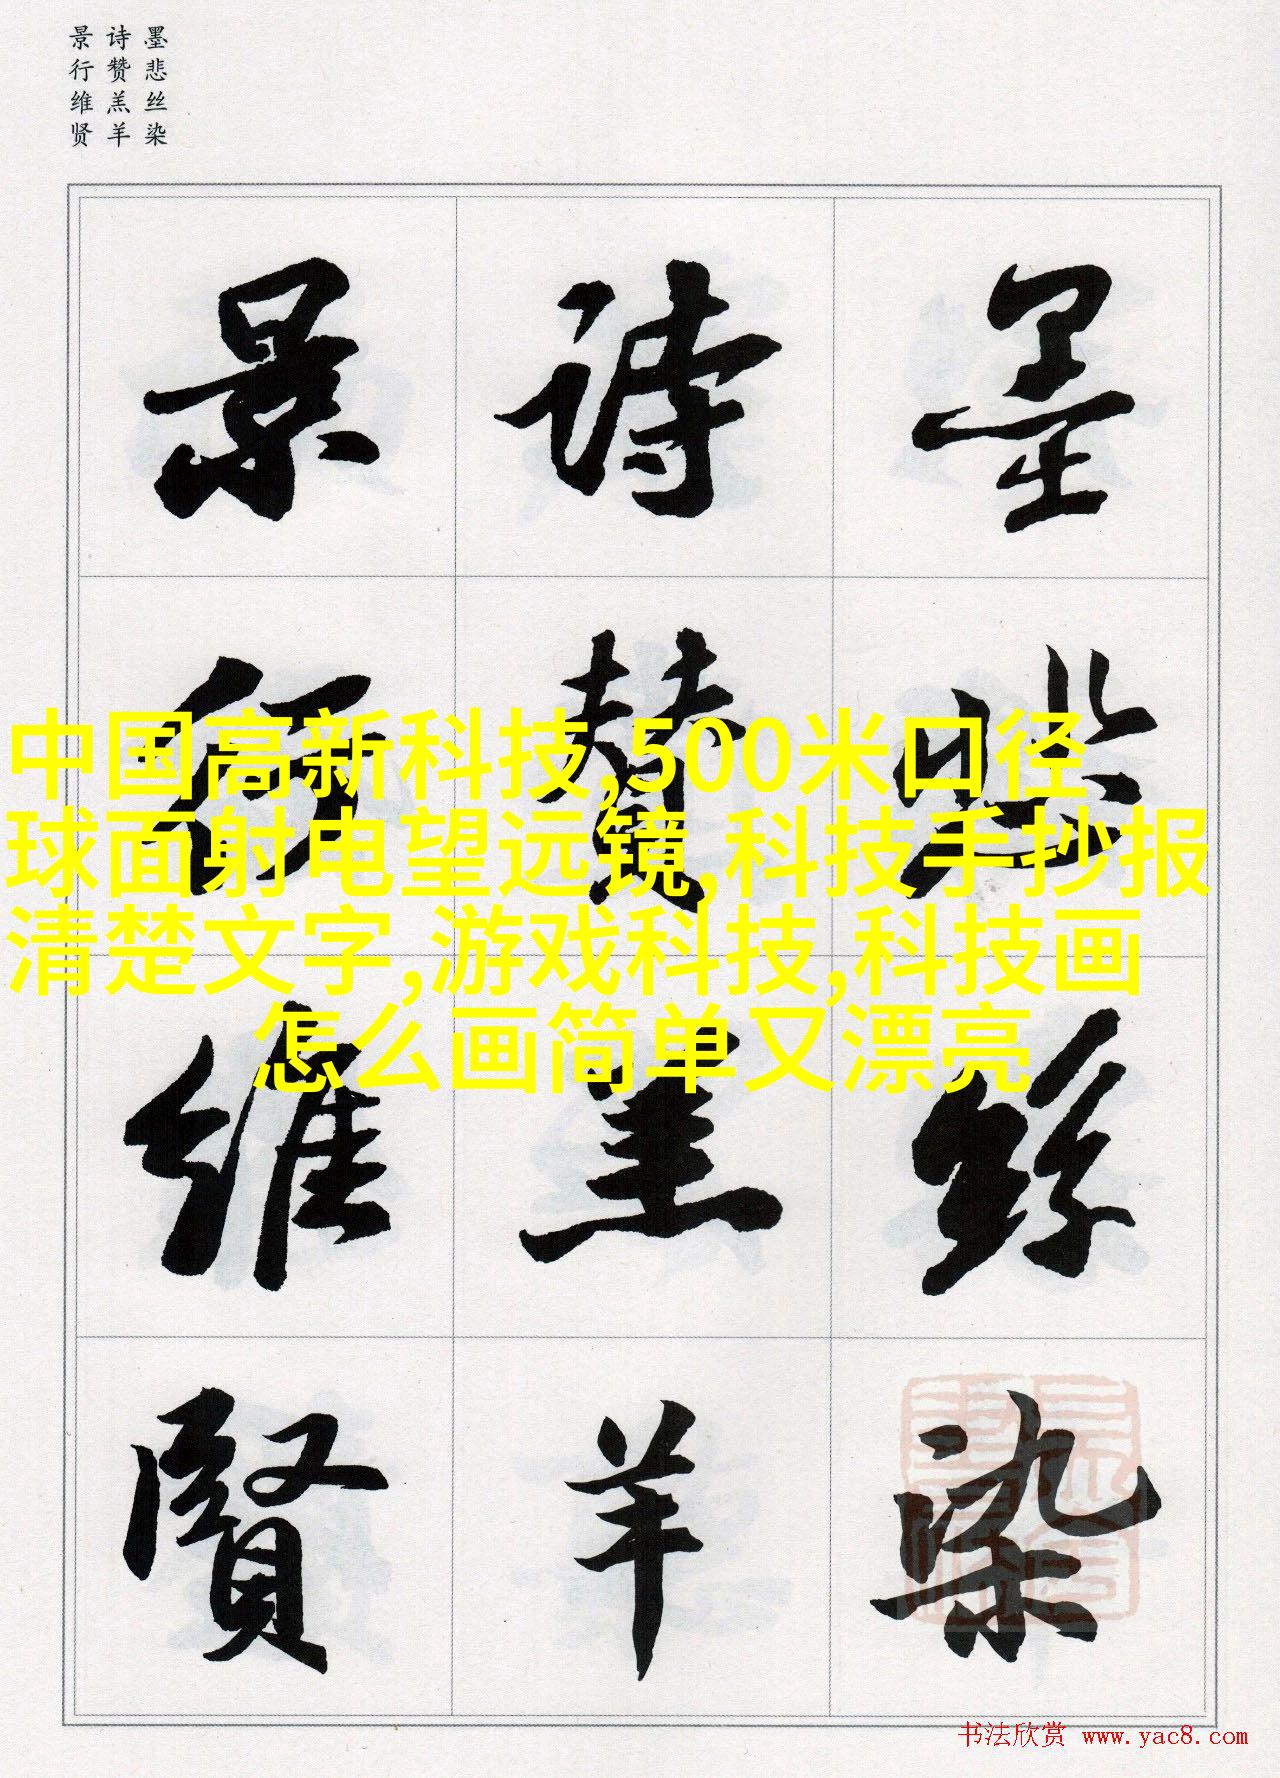 墨悲丝染
诗赞羔羊
景行维贤
墨悲絲染
詩赞羔羊
景行維賢
中国高新科技,500米口径
球面射电望远镜,科技手抄报
清楚文字,游戏科技,科技画
怎么画简单又漂亮
书法欣赏 www.yac8.com